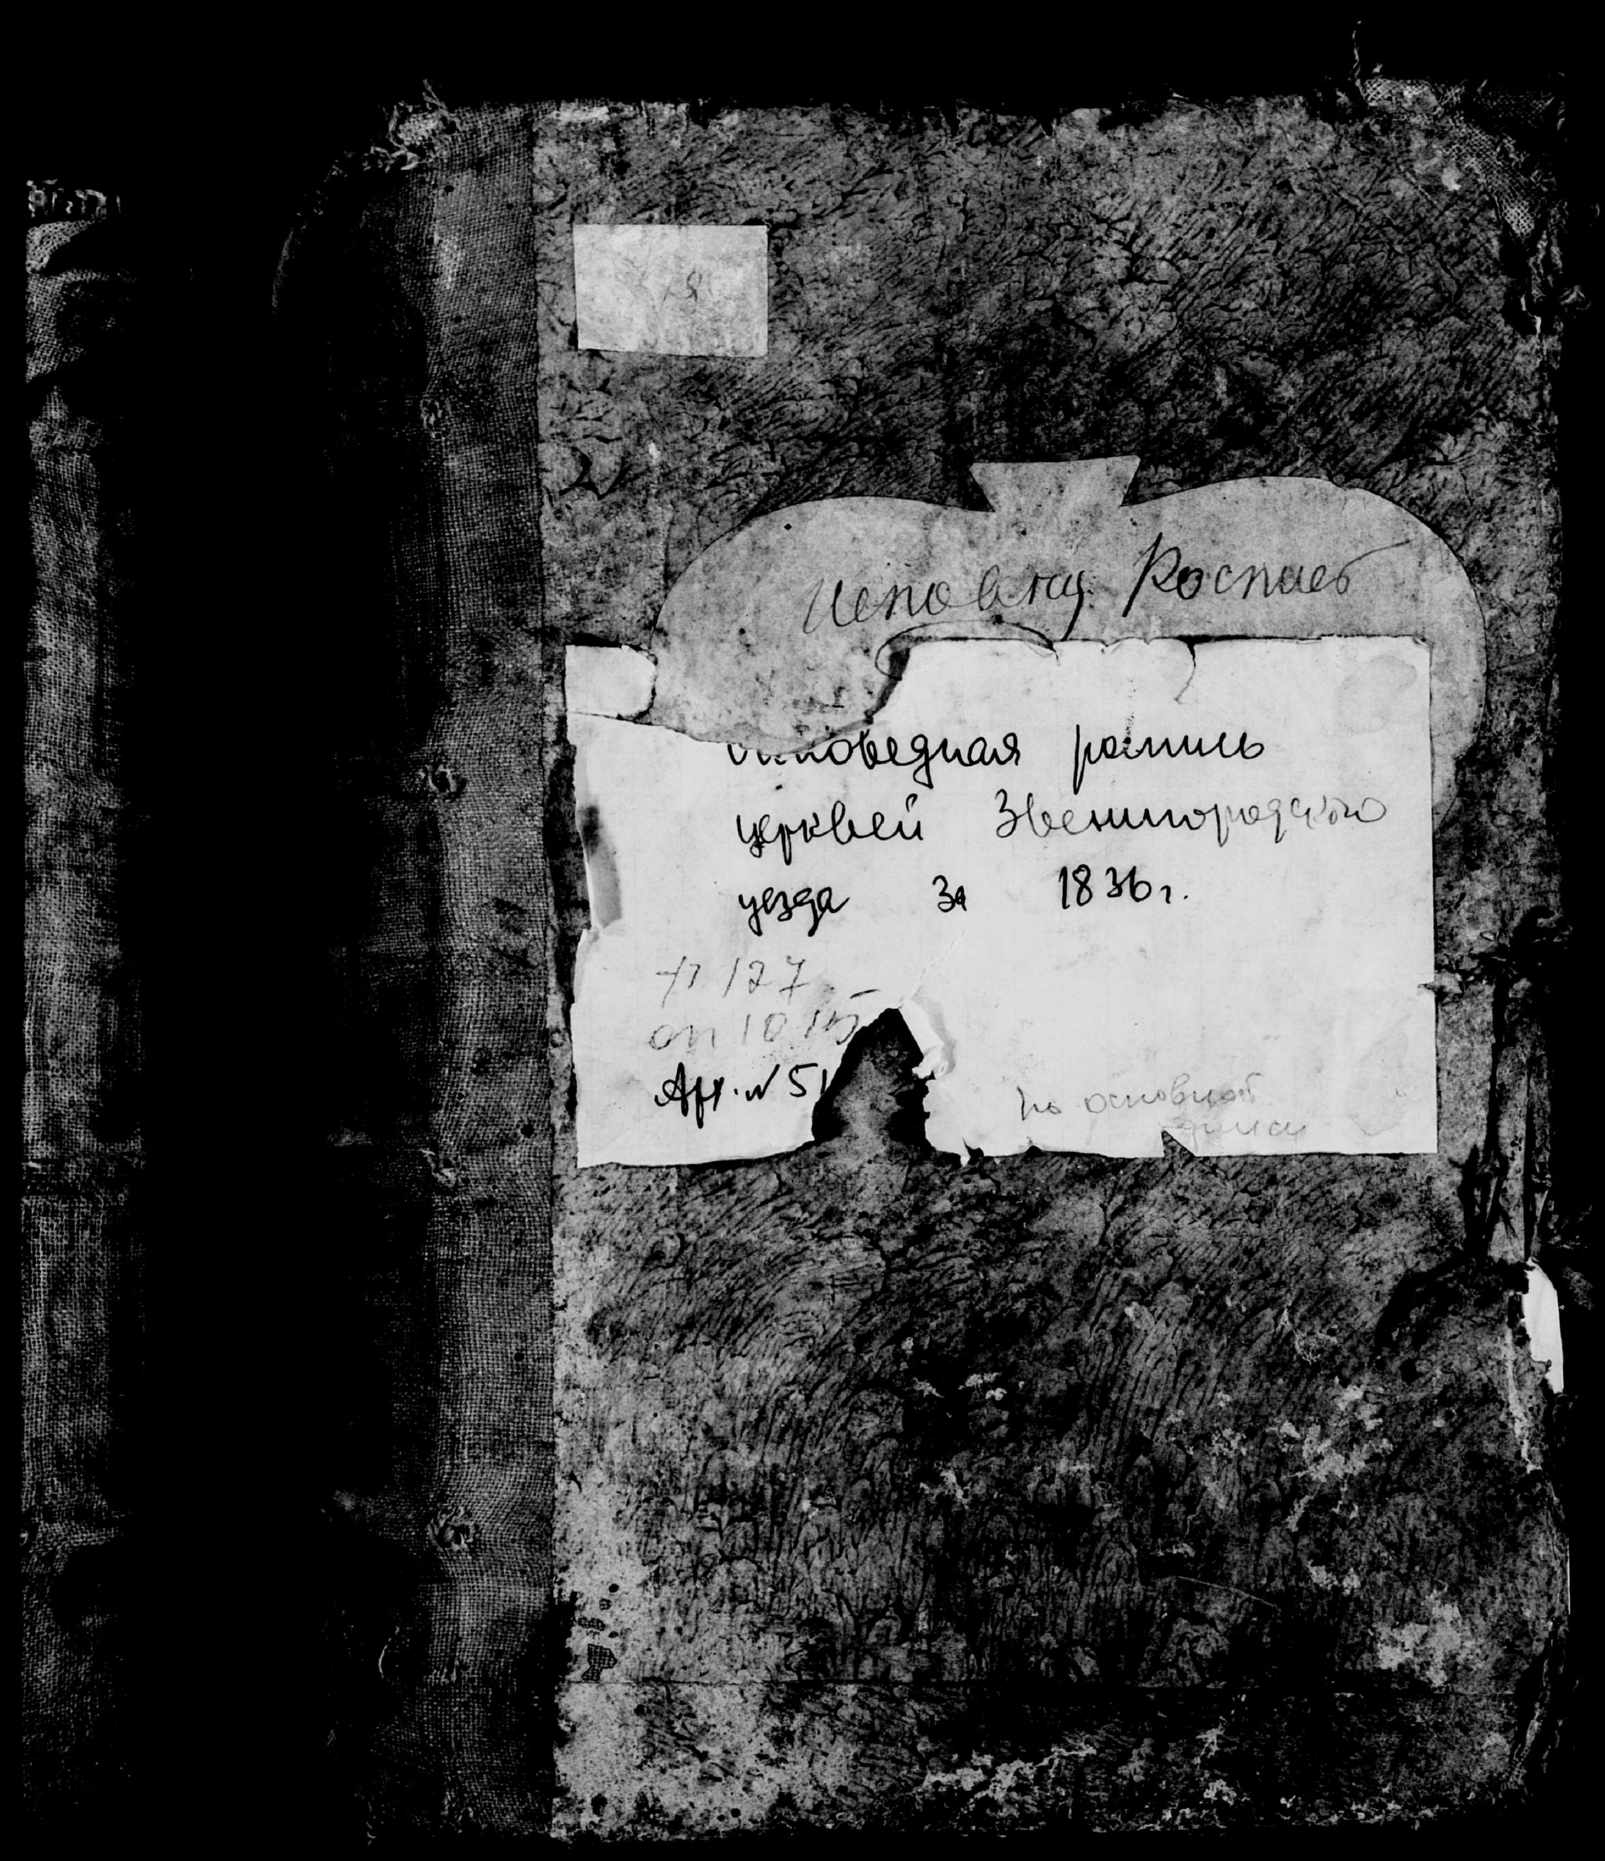 Исповѣд. Роспись
Исповедная роспись
церквей Звенигородского
уезда за 1836г.
ф 127
оп 1015
Арх. № 51
по основной